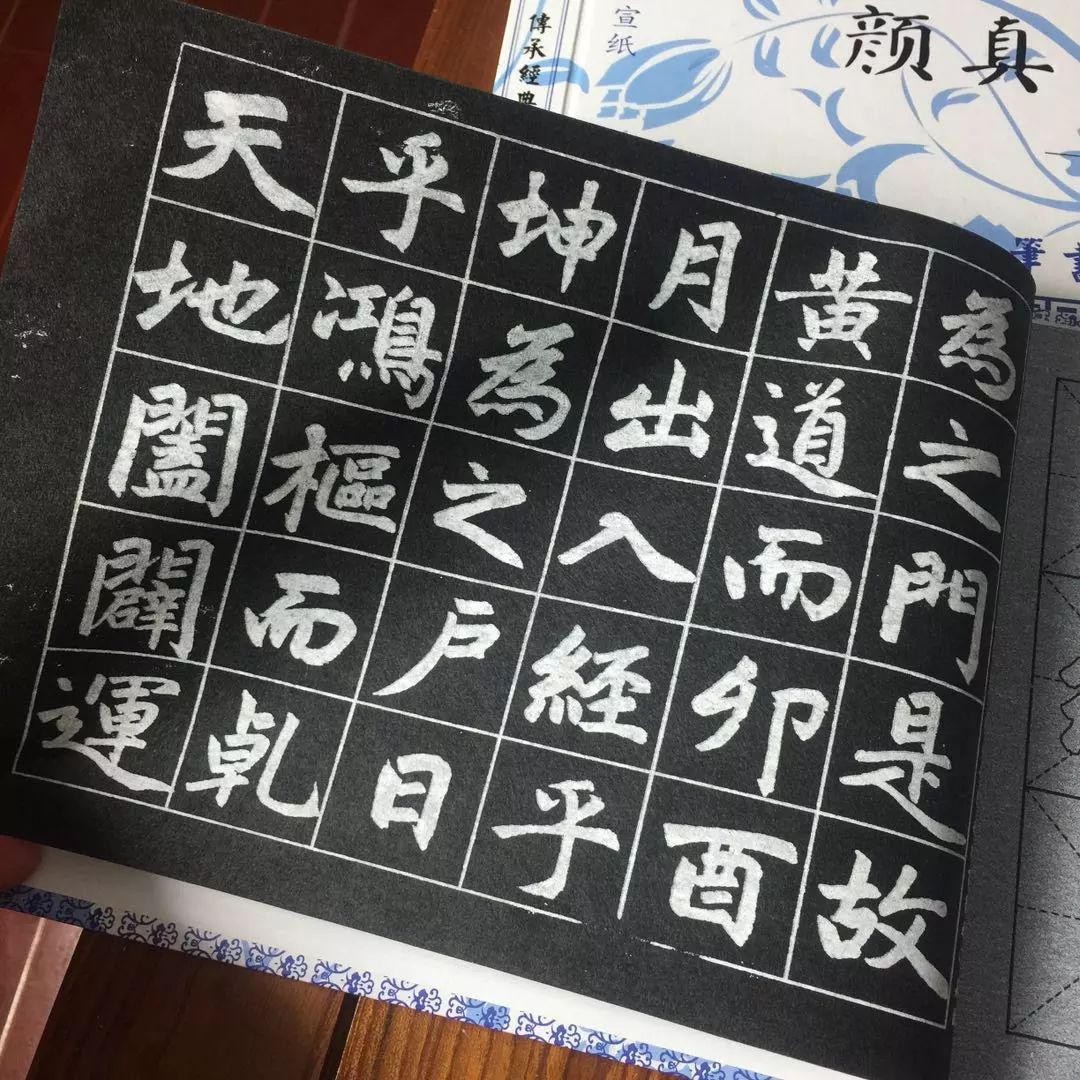 天地闔闢運
乎鴻樞而乹
坤為之戶日
月出入經乎
黄道而卯酉
為之門是故
傳承經典
宣纸
颜真